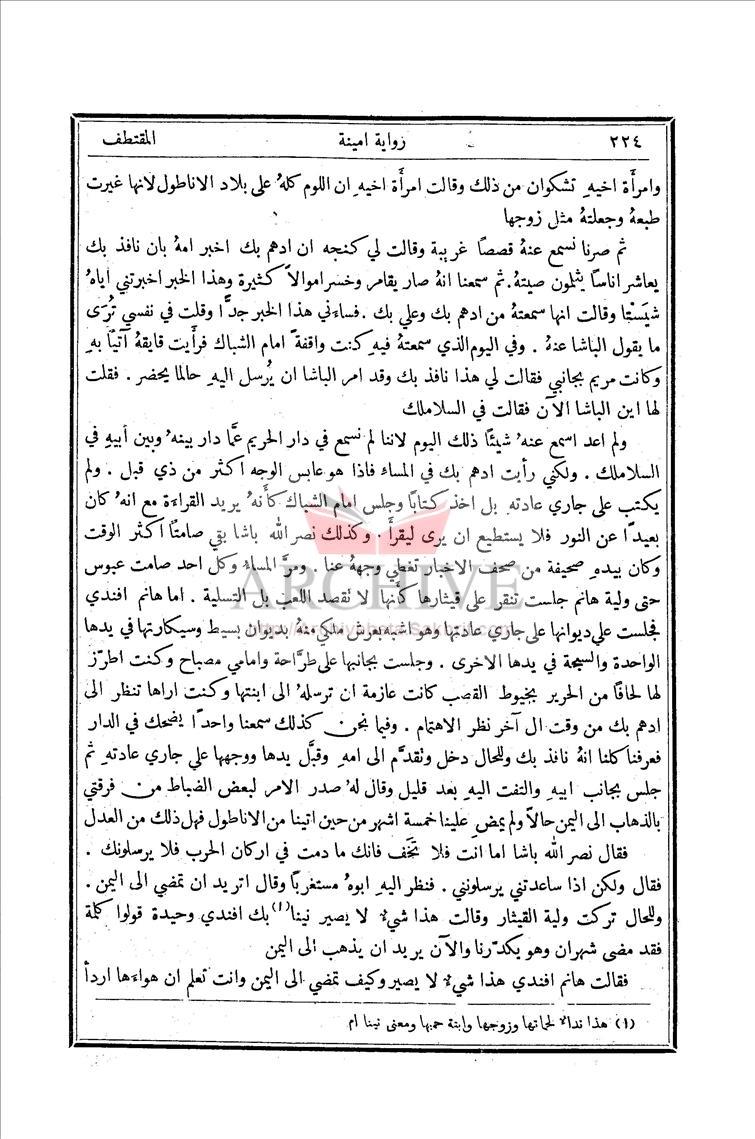 ٢٢٤ رواية امينة المقتطف
وامرأَة اخيهِ تشكوان من ذلك وقالت امرأَة اخيهِ ان اللوم كلهُ على بلاد الاناطول لانها غيرت
طبعهُ وجعلتهُ مثل زوجها
ثم صرنا نسمع عنهُ قصصاً غريبة وقالت لي كنجه ان ادهم بك اخبر امهُ بان نافذ بك
يعاشر اناساً يثلمون صيتهُ. ثم سمعنا انهُ صار يقامر وخسر اموالاً كثيرة وهذا الخبر اخبرتني اياهُ
شيَسْتا وقالت انها سمعتهُ من ادهم بك وعلي بك. فساءني هذا الخبر جدًّا وقلت في نفسي تُرَى
ما يقول الباشا عنهُ. وفي اليوم الذي سمعتهُ فيهِ كنت واقفةً امام الشباك فرأَيت قايقهُ آتياً بهِ
وكانت مريم بجانبي فقالت لي هذا نافذ بك وقد امر الباشا ان يُرسل اليهِ حالما يحضر. فقلت
لها اين الباشا الآن فقالت في السلاملك
ولم اعد اسمع عنهُ شيئاً ذلك اليوم لاننا لم نسمع في دار الحريم عمَّا دار بينهُ وبين أبيهِ في
السلاملك. ولكني رأيت ادهم بك في المساء فاذا هو عابس الوجه اكثر من ذي قبل. ولم
يكتب على جاري عادتهِ بل اخذ كتاباً وجلس امام الشباك كأَنهُ يريد القراءة مع انهُ كان
بعيداً عن النور فلا يستطيع ان يرى ليقرأَ. وكذلك نصر الله باشا بقي صامتاً اكثر الوقت
وكان بيدهِ صحيفة من صحف الاخبار تغطي وجههُ عنا. ومرَّ المساءُ وكل احد صامت عبوس
حتى ولية هانم جلست تنقر على قيثارها كأنها لا نقصد اللعب بل التسلية. اما هانم افندي
فجلست على ديوانها على جاري عادتها وهو اشبه بعرش ملكي منهُ بديوان بسيط وسيكارتها في يدها
الواحدة والسبحة في يدها الاخرى. وجلست بجانبها على طرَّاحة وامامي مصباح وكنت اطرّز
لها لحافاً من الحرير بخيوط القصب كانت عازمة ان ترسلهُ الى ابنتها وكنت اراها تنظر الى
ادهم بك من وقت ال آخر نظر الاهتمام. وفيما نحن كذلك سمعنا واحداً يضحك في الدار
فعرفنا كلنا انهُ نافذ بك وللحال دخل ونقدَّم الى امهِ وقبَّل يدها ووجهها على جاري عادتهِ ثم
جلس بجانب ابيهِ والتفت اليهِ بعد قليل وقال لهُ صدر الامر لبعض الضباط من فرقتي
بالذهاب الى اليمن حالاً ولم يمضِ علينا خمسة اشهر من حين اتينا من الاناطول فهل ذلك من العدل
فقال نصر الله باشا اما انت فلا تَخَف فانك ما دمت في اركان الحرب فلا يرسلونك.
فقال ولكن اذا ساعدتني يرسلونني. فنظر اليهِ ابوهُ مستغرباً وقال اتريد ان تمضي الى اليمن.
وللحال تركت ولية القيثار وقالت هذا شيءٌ لا يصير نينا(١) بك افندي وحيدة قولوا كلمة
فقد مضى شهران وهو يكدّرنا والآن يريد ان يذهب الى اليمن
فقالت هانم افندي هذا شيءٌ لا يصير وكيف تمضي الى اليمن وانت تعلم ان هواءَها اردأ
(١) هذا ندالا لحماتها وزوجها وابنة حميها ومعنى نينا ام
ARCHIVE